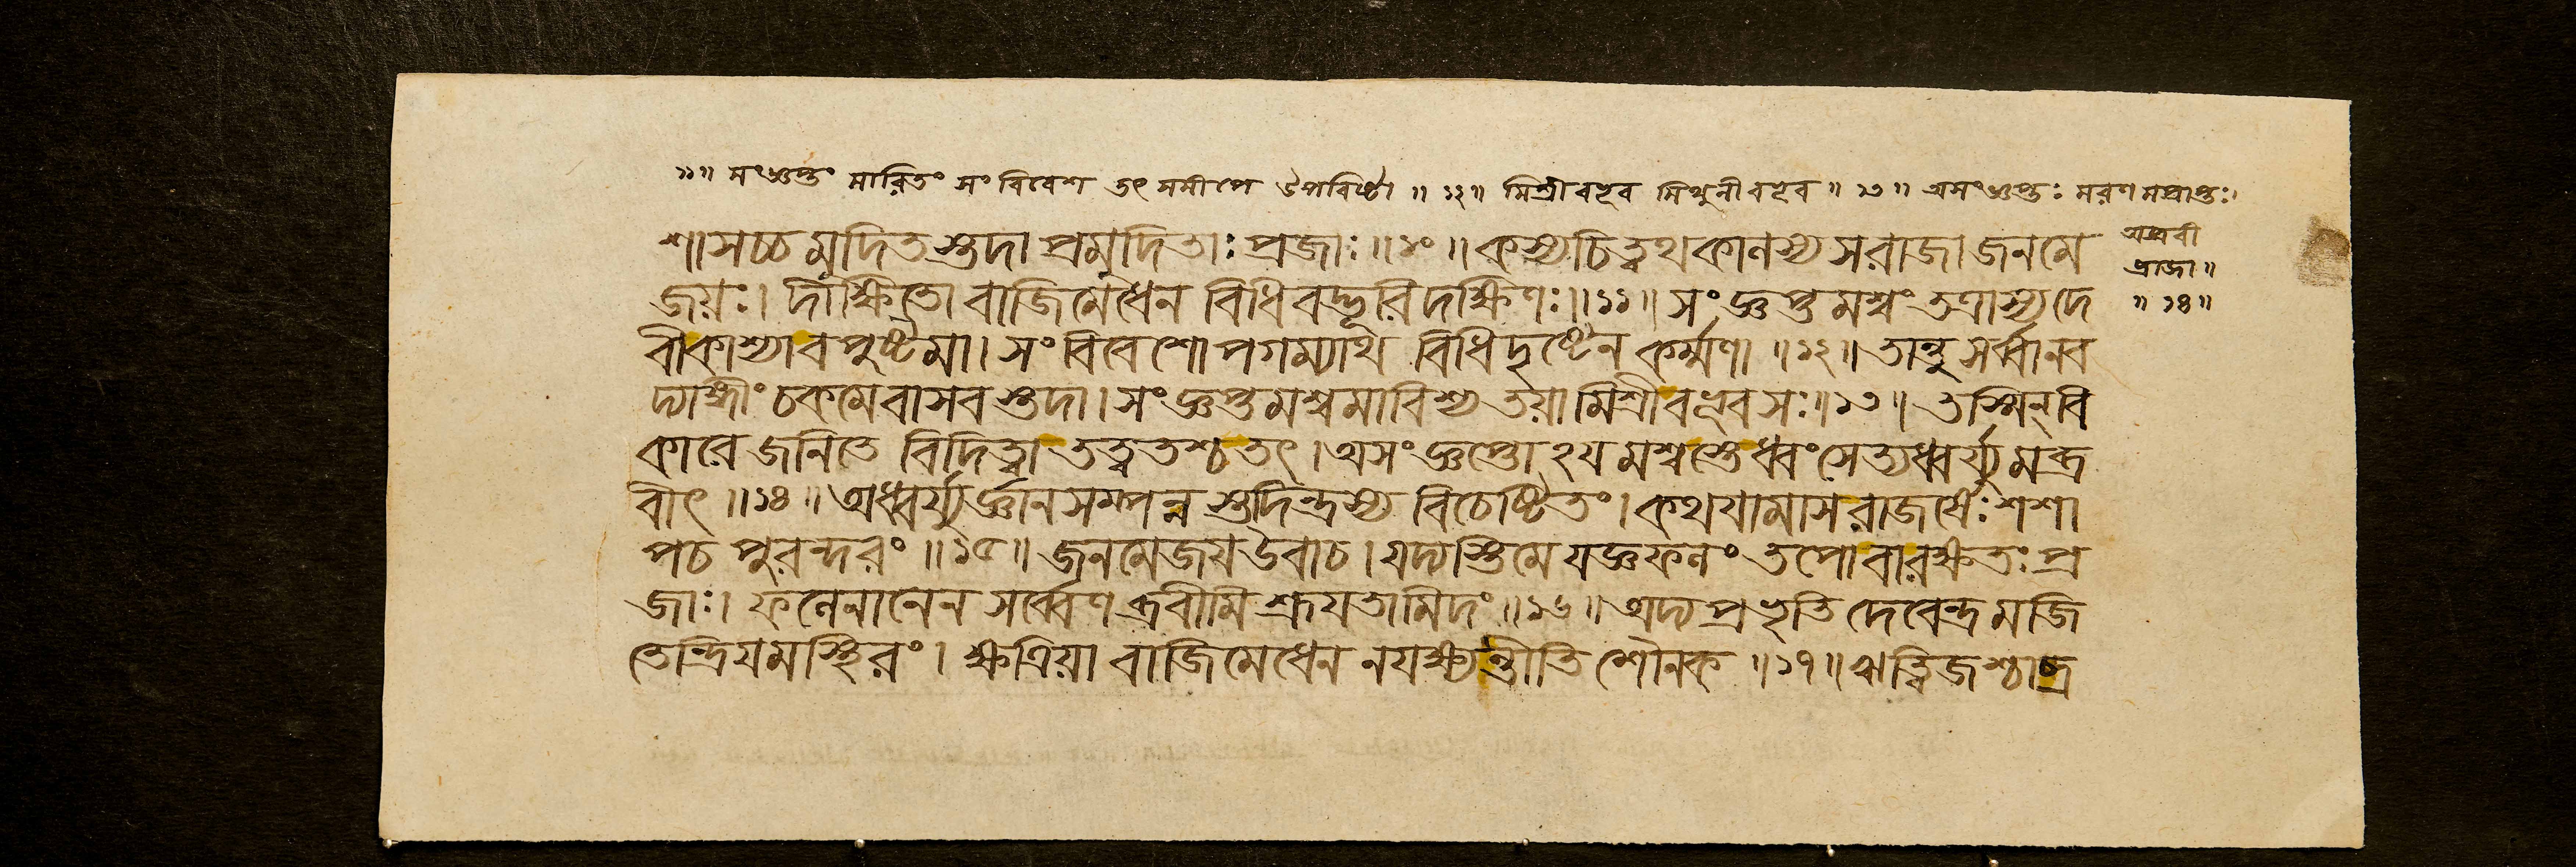 ১১॥ সংজ্ঞপ্তং মারিতং সংবিবেশ তৎ সমীপে উপবিষ্টা ॥ ১২॥ মিশ্রীবভূব মিথুনীবভূব ॥ ১৩ ॥ অসংজ্ঞপ্তঃ মরণমপ্রাপ্তঃ।
অব্রবী
দ্রাজা॥
॥ ১৪॥
শাসচ্চ মুদিতস্তুদা প্রমুদিতাঃ প্রজাঃ ॥ ১০ ॥ কস্যচিত্ত্বথকালস্য স রাজা জনমে
জয়ঃ। দীক্ষিতো বাজিমেধেন বিধিবদ্ভূরিদক্ষিণঃ॥ ১১॥ সংজ্ঞপ্তমশ্বং তত্রাস্য দে
বীকাশ্যাবপুষ্টমা। সংবিবেশোপগম্যাথ বিধিদৃষ্টেন কর্ম্মণা ॥ ১২॥ তান্তু সর্ব্বানব
দ্যাঙ্গীং চকমে বাসবস্তুদা। সংজ্ঞপ্তমশ্বমাবিশ্য তয়া মিশ্রীবভূব সঃ॥ ১৩॥ তস্মিন্ বি
কারে জনিতে বিদিত্বা তত্ত্বতশ্চ তৎ। অসংজ্ঞপ্তো ঽয মশ্বস্তে ধ্বংসেত্যধ্বর্য্যুমব্র
বীৎ ॥ ১৪ ॥ অধ্বর্য্যুর্জ্ঞানসম্পন্নস্তুদিন্দ্রস্য বিচেষ্টিতং। কথযামাস রাজর্ষেঃ শশা
প চ পুরন্দরং ॥ ১৫॥ জনমেজয উবাচ। যদ্যস্তি মে যজ্ঞফলং তপো বা রক্ষতঃ প্র
জাঃ। ফলেনানেন সর্ব্বেণ ব্রবীমি শ্রূযতামিদং ॥ ১৬॥ অদ্য প্রভৃতি দেবেন্দ্রমজি
তেন্দ্রিযমস্থিরং। ক্ষত্রিয়া বাজিমেধেন ন যক্ষ্যন্তীতি শৌনক ॥ ১৭॥ ঋত্বিজশ্চাব্র